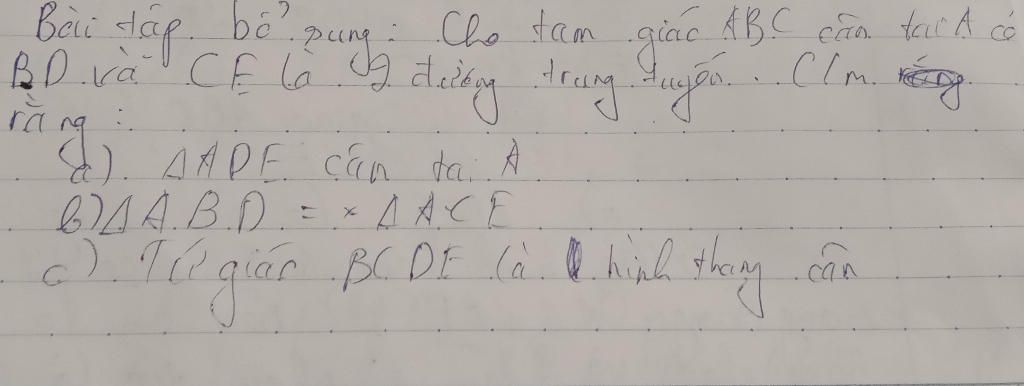 Bài tập bổ sung: Cho tam giác ABC cân tại A có
BD và CE là 2 đường trung tuyến. C/m
rằng:
a) ΔADE cân tại A
b) ΔABD = ΔACE
c) Tứ giác BCDE là hình thang cân